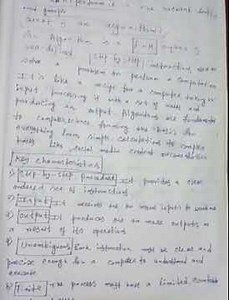 and people
What is an algorithm:
An Algorithm is a finite
step by step instructions
solve a problem or perform a computation
It is like a recipe for a computer taking
input processing it with a set of rules and
producing an output Algorithms are fundamental
to computer science forming the basis for
everything from simple calculations to complex
tasks like social media content recommendation
Key characteristics
1) Step-by-step procedure: It provides a clear
ordered set of instructions
2) Input: It accepts one or more inputs to
3) Output: It produces one or more outputs as
a result of its operation
4) Unambiguous: Each instruction must be clear and
precise enough for a computer to understand and
execute
5) Finite: The process must have a limited